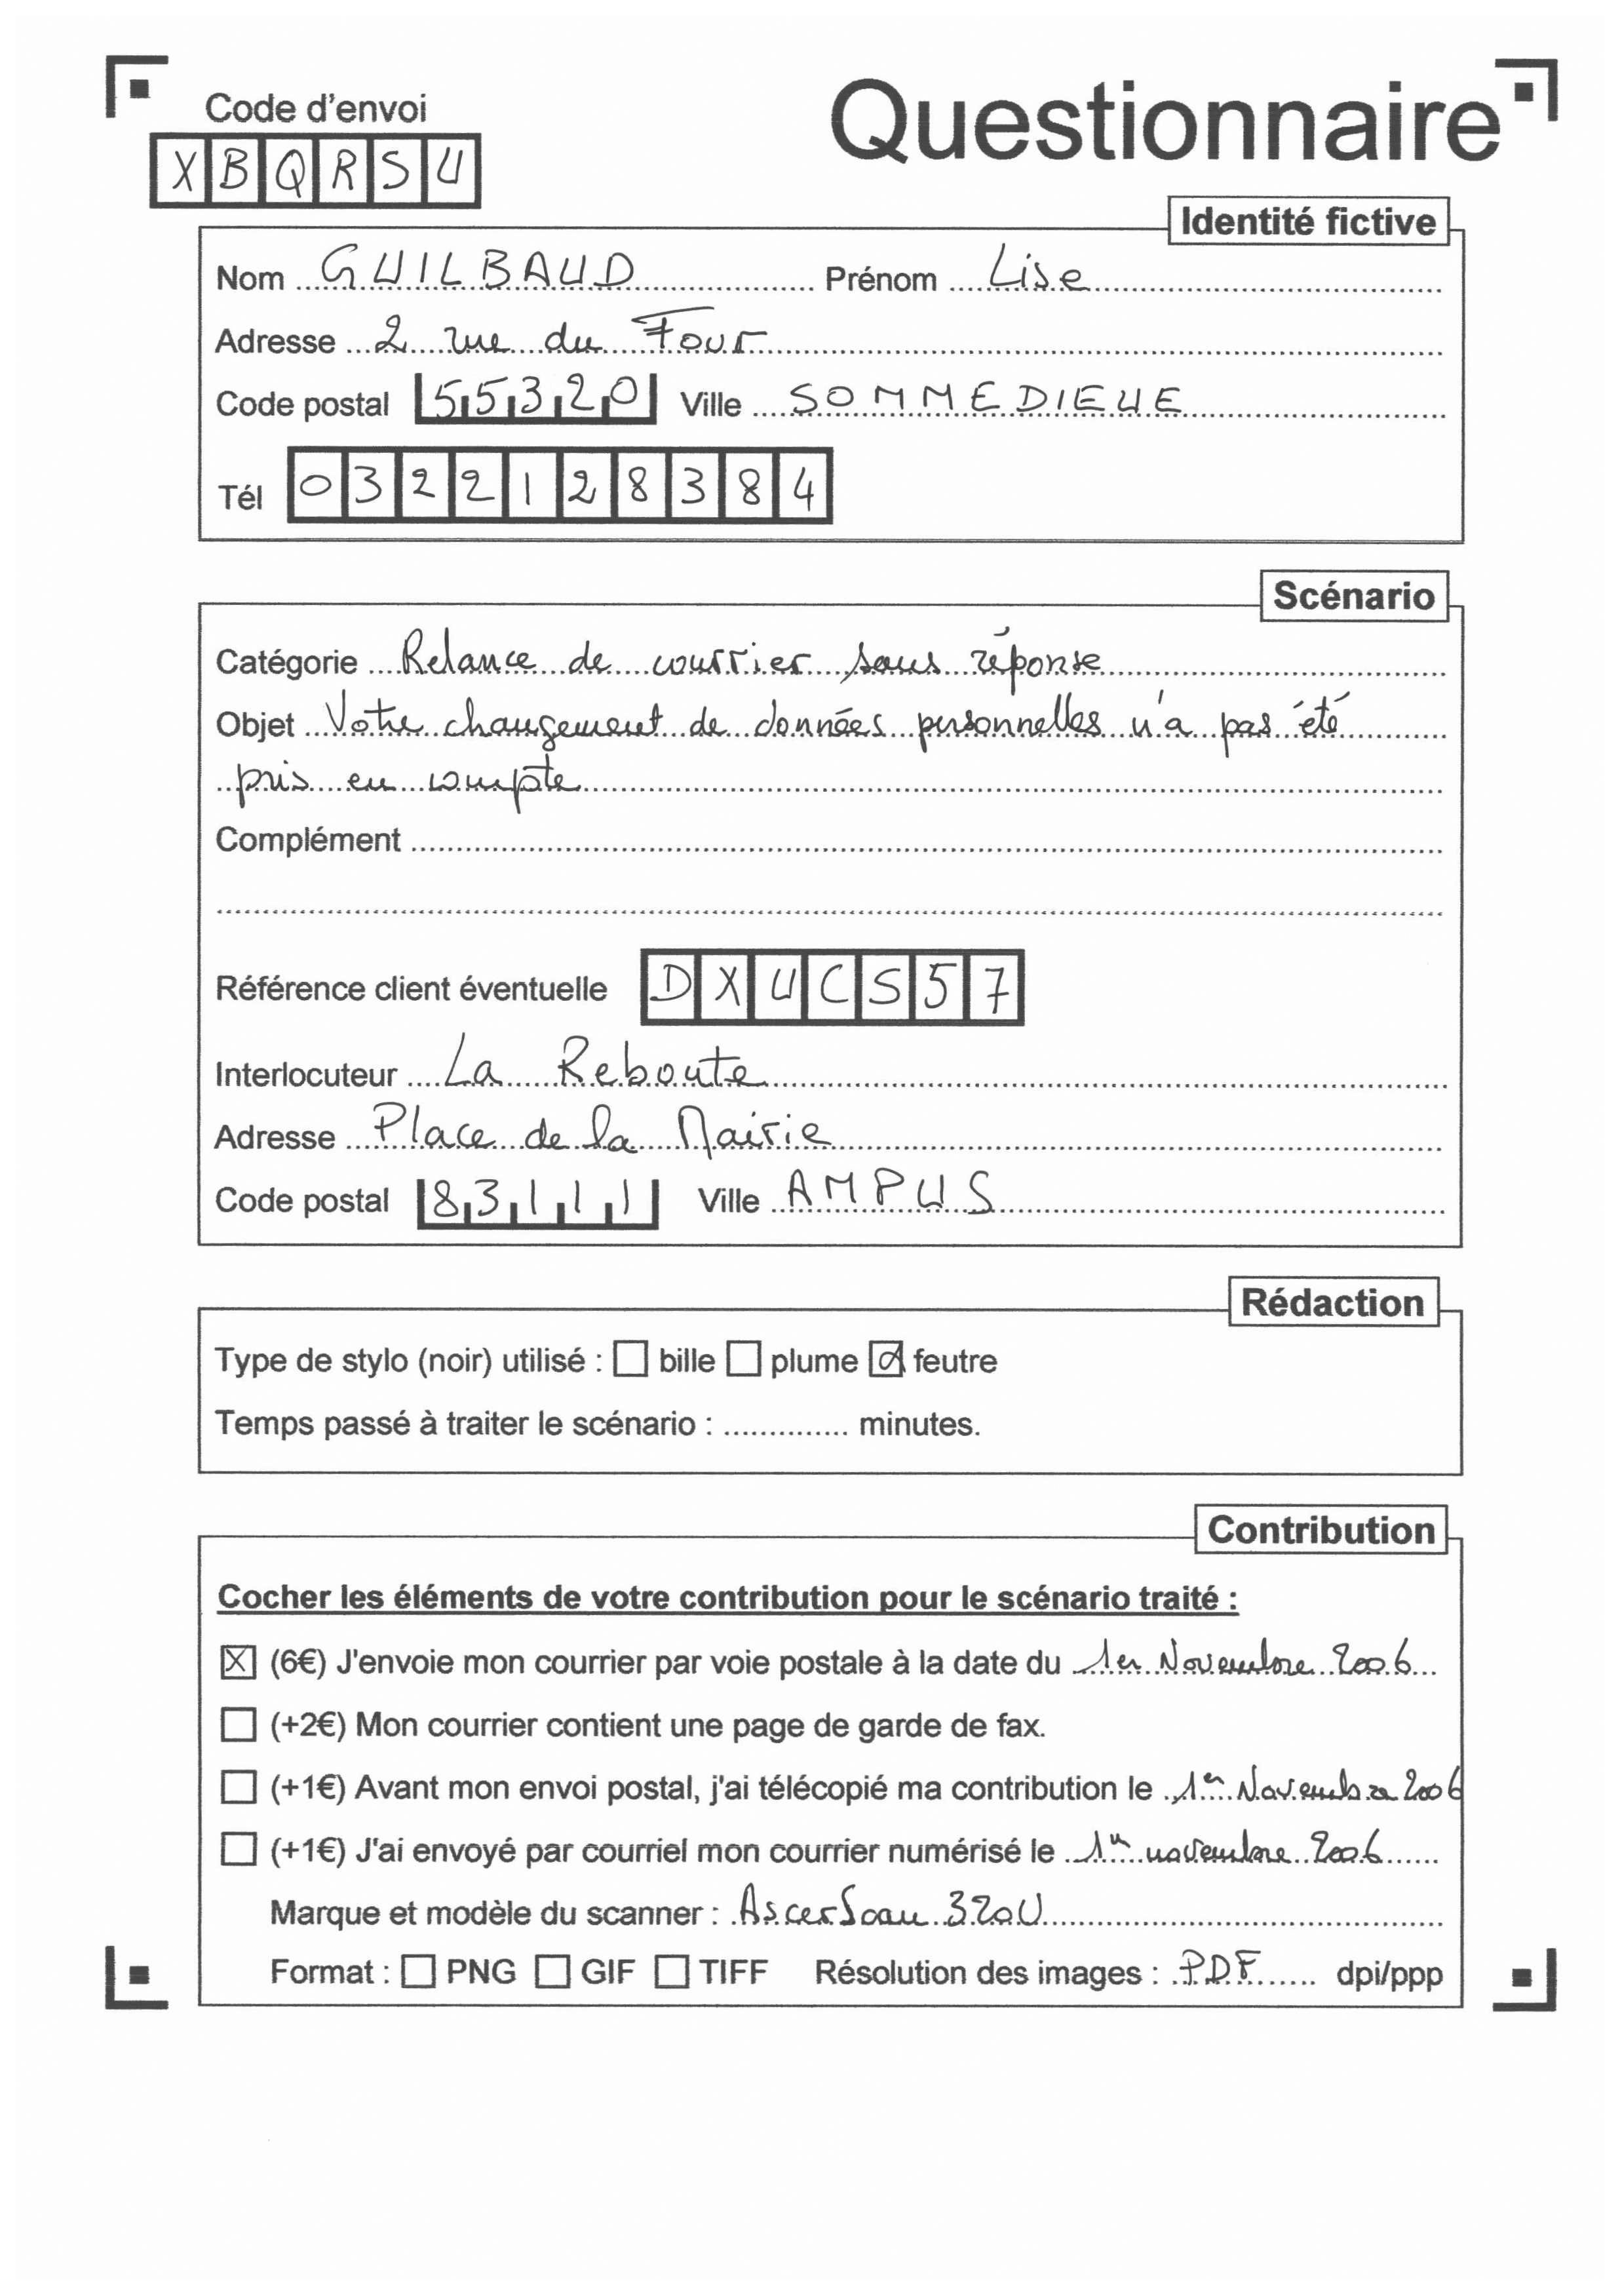 Code d'envoi
Questionnaire
XBQRSU
Identité fictive
Nom GUILBAUD Prénom Lise
Adresse 2 rue du Four
Code postal 55320 Ville SOMMEDIEUE
Tél 0322128384
Scénario
Catégorie Relance de courrier sans réponse
Objet Votre changement de données personnelles n'a pas été
pris en compte
Complément
Référence client éventuelle DXUCS57
Interlocuteur La Reboute
Adresse Place de la Mairie
Code postal 83111 Ville AMPUS
Rédaction
Type de stylo (noir) utilisé : bille plume feutre
Temps passé à traiter le scénario : .............. minutes.
Contribution
Cocher les éléments de votre contribution pour le scénario traité :
(6€) J'envoie mon courrier par voie postale à la date du 1er Novembre 2006
(+2€) Mon courrier contient une page de garde de fax.
(+1€) Avant mon envoi postal, j'ai télécopié ma contribution le 1er Novembre 2006
(+1€) J'ai envoyé par courriel mon courrier numérisé le 1er novembre 2006
Marque et modèle du scanner : AscerScan 320U
Format : PNG GIF TIFF Résolution des images : PDF dpi/ppp